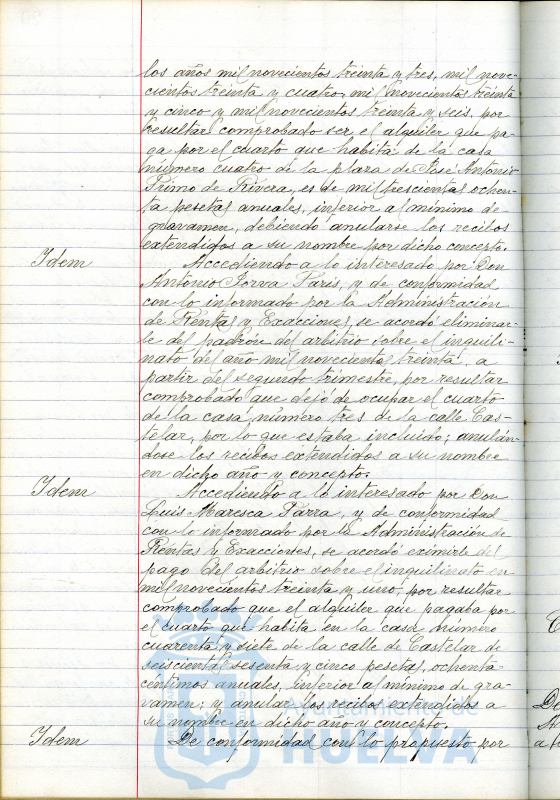 los años mil novecientos treinta y tres, mil nove-
cientos treinta y cuatro, mil novecientos treinta
y cinco y mil novecientos treinta y seis, por
resultar comprobado ser el alquiler que pa-
ga por el cuarto que habita de la casa
número cuatro de la plaza de José Antonio
Primo de Rivera, es de mil trescientas ochen-
ta pesetas anuales, inferior al mínimo de
gravamen, debiendo anularse los recibos
extendidos a su nombre por dicho concepto.
Idem
Accediendo a lo interesado por Don
Antonio Paris, y de conformidad
con lo informado por la Administración
de Rentas y Exacciones, se acordó eliminar-
le del padrón del arbitrio sobre el inquili-
nato del año mil novecientos treinta, a
partir del segundo trimestre, por resultar
comprobado que dejó de ocupar el cuarto
de la casa número tres de la calle Cas-
telar, por lo que estaba incluido; anulán-
dose los recibos extendidos a su nombre
en dicho año y concepto.
Idem
Accediendo a lo interesado por Don
Luis Maresca Parra, y de conformidad
con lo informado por la Administración de
Rentas y Exacciones, se acordó eximirle del
pago del arbitrio sobre el inquilinato en
mil novecientos treinta y uno, por resultar
comprobado que el alquiler que pagaba por
el cuarto que habita en la casa número
cuarenta y siete de la calle de Castelar de
seiscientas sesenta y cinco pesetas, ochenta
céntimos anuales, inferior al mínimo de gra-
vamen; y anular los recibos extendidos a
su nombre en dicho año y concepto.
Idem
De conformidad con lo propuesto por
Ayuntamiento de
HUELVA